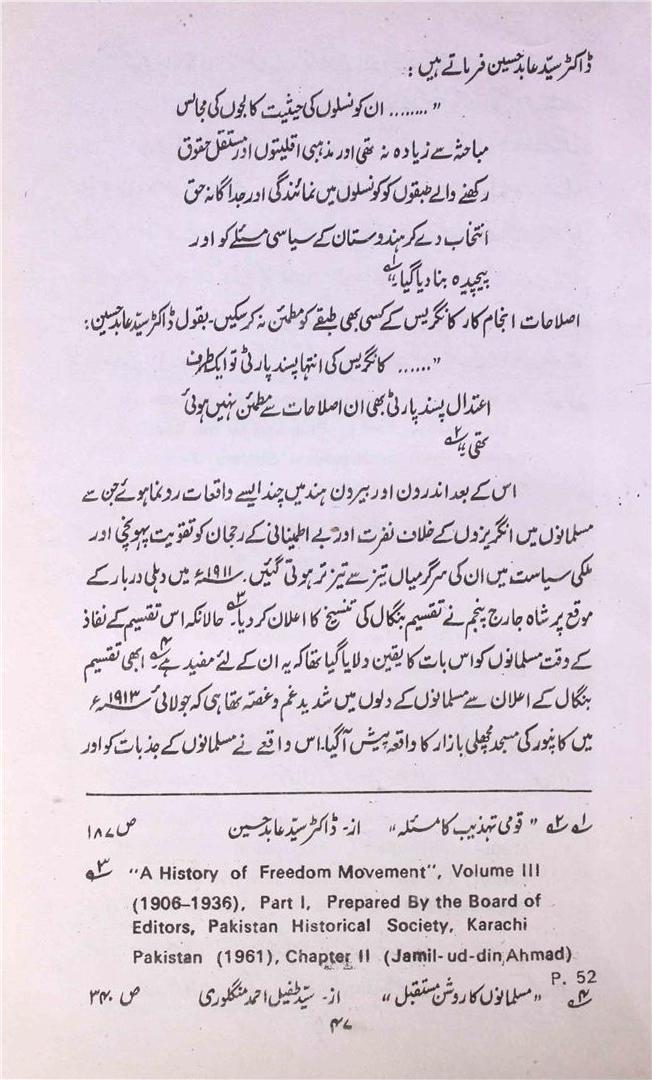 ڈاکٹر سیّد عابد حسین فرماتے ہیں :
"........ ان کونسلوں کی حیثیت کالجوں کی مجالس
مباحثہ سے زیادہ نہ تھی اور مذہبی اقلیتوں اور مستقل حقوق
رکھنے والے طبقوں کو کونسلوں میں نمائندگی اور جداگانہ حق
انتخاب دے کر ہندوستان کے سیاسی مسئلے کو اور
پیچیدہ بنا دیا گیا" ۱؎
اصلاحات انجام کار کانگریس کے کسی بھی طبقے کو مطمئن نہ کر سکیں۔ بقول ڈاکٹر سیّد عابد حسین :
"...... کانگریس کی انتہا پسند پارٹی تو ایک طرف
اعتدال پسند پارٹی بھی ان اصلاحات سے مطمئن نہیں ہوئی
تھی" ۲؎
اس کے بعد اندرون اور بیرون ہند میں چند ایسے واقعات رونما ہوئے جن سے
مسلمانوں میں انگریزوں کے خلاف نفرت اور بے اطمینانی کے رجحان کو تقویت پہونچی اور
ملکی سیاست میں ان کی سرگرمیاں تیز سے تیز تر ہوتی گئیں۔ ۱۹۱۱ء میں دہلی دربار کے
موقع پر شاہ جارج پنجم نے تقسیم بنگال کی تنسیخ کا اعلان کر دیا۔ ۳؎ حالانکہ اس تقسیم کے نفاذ
کے وقت مسلمانوں کو اس بات کا یقین دلایا گیا تھا کہ یہ ان کے لئے مفید ہے ۴؎ ابھی تقسیم
بنگال کے اعلان سے مسلمانوں کے دلوں میں شدید غم و غصہ تھا ہی کہ جولائی ۱۹۱۳ء
میں کانپور کی مسجد مچھلی بازار کا واقعہ پیش آگیا۔ اس واقعے نے مسلمانوں کے جذبات کو اور
۱؎ ۲؎ "قومی تہذیب کا مسئلہ" از۔ ڈاکٹر سیّد عابد حسین ص ۱۸۷
۳؎ "A History of Freedom Movement", Volume III
(1906–1936), Part I, Prepared By the Board of
Editors, Pakistan Historical Society, Karachi
Pakistan (1961), Chapter II (Jamil-ud-din Ahmad)
P. 52
۴؎ "مسلمانوں کا روشن مستقبل" از۔ سیّد طفیل احمد منگلوری ص ۳۴۰
۴۷